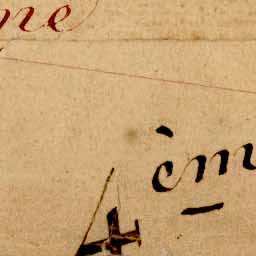 ne
4 èm